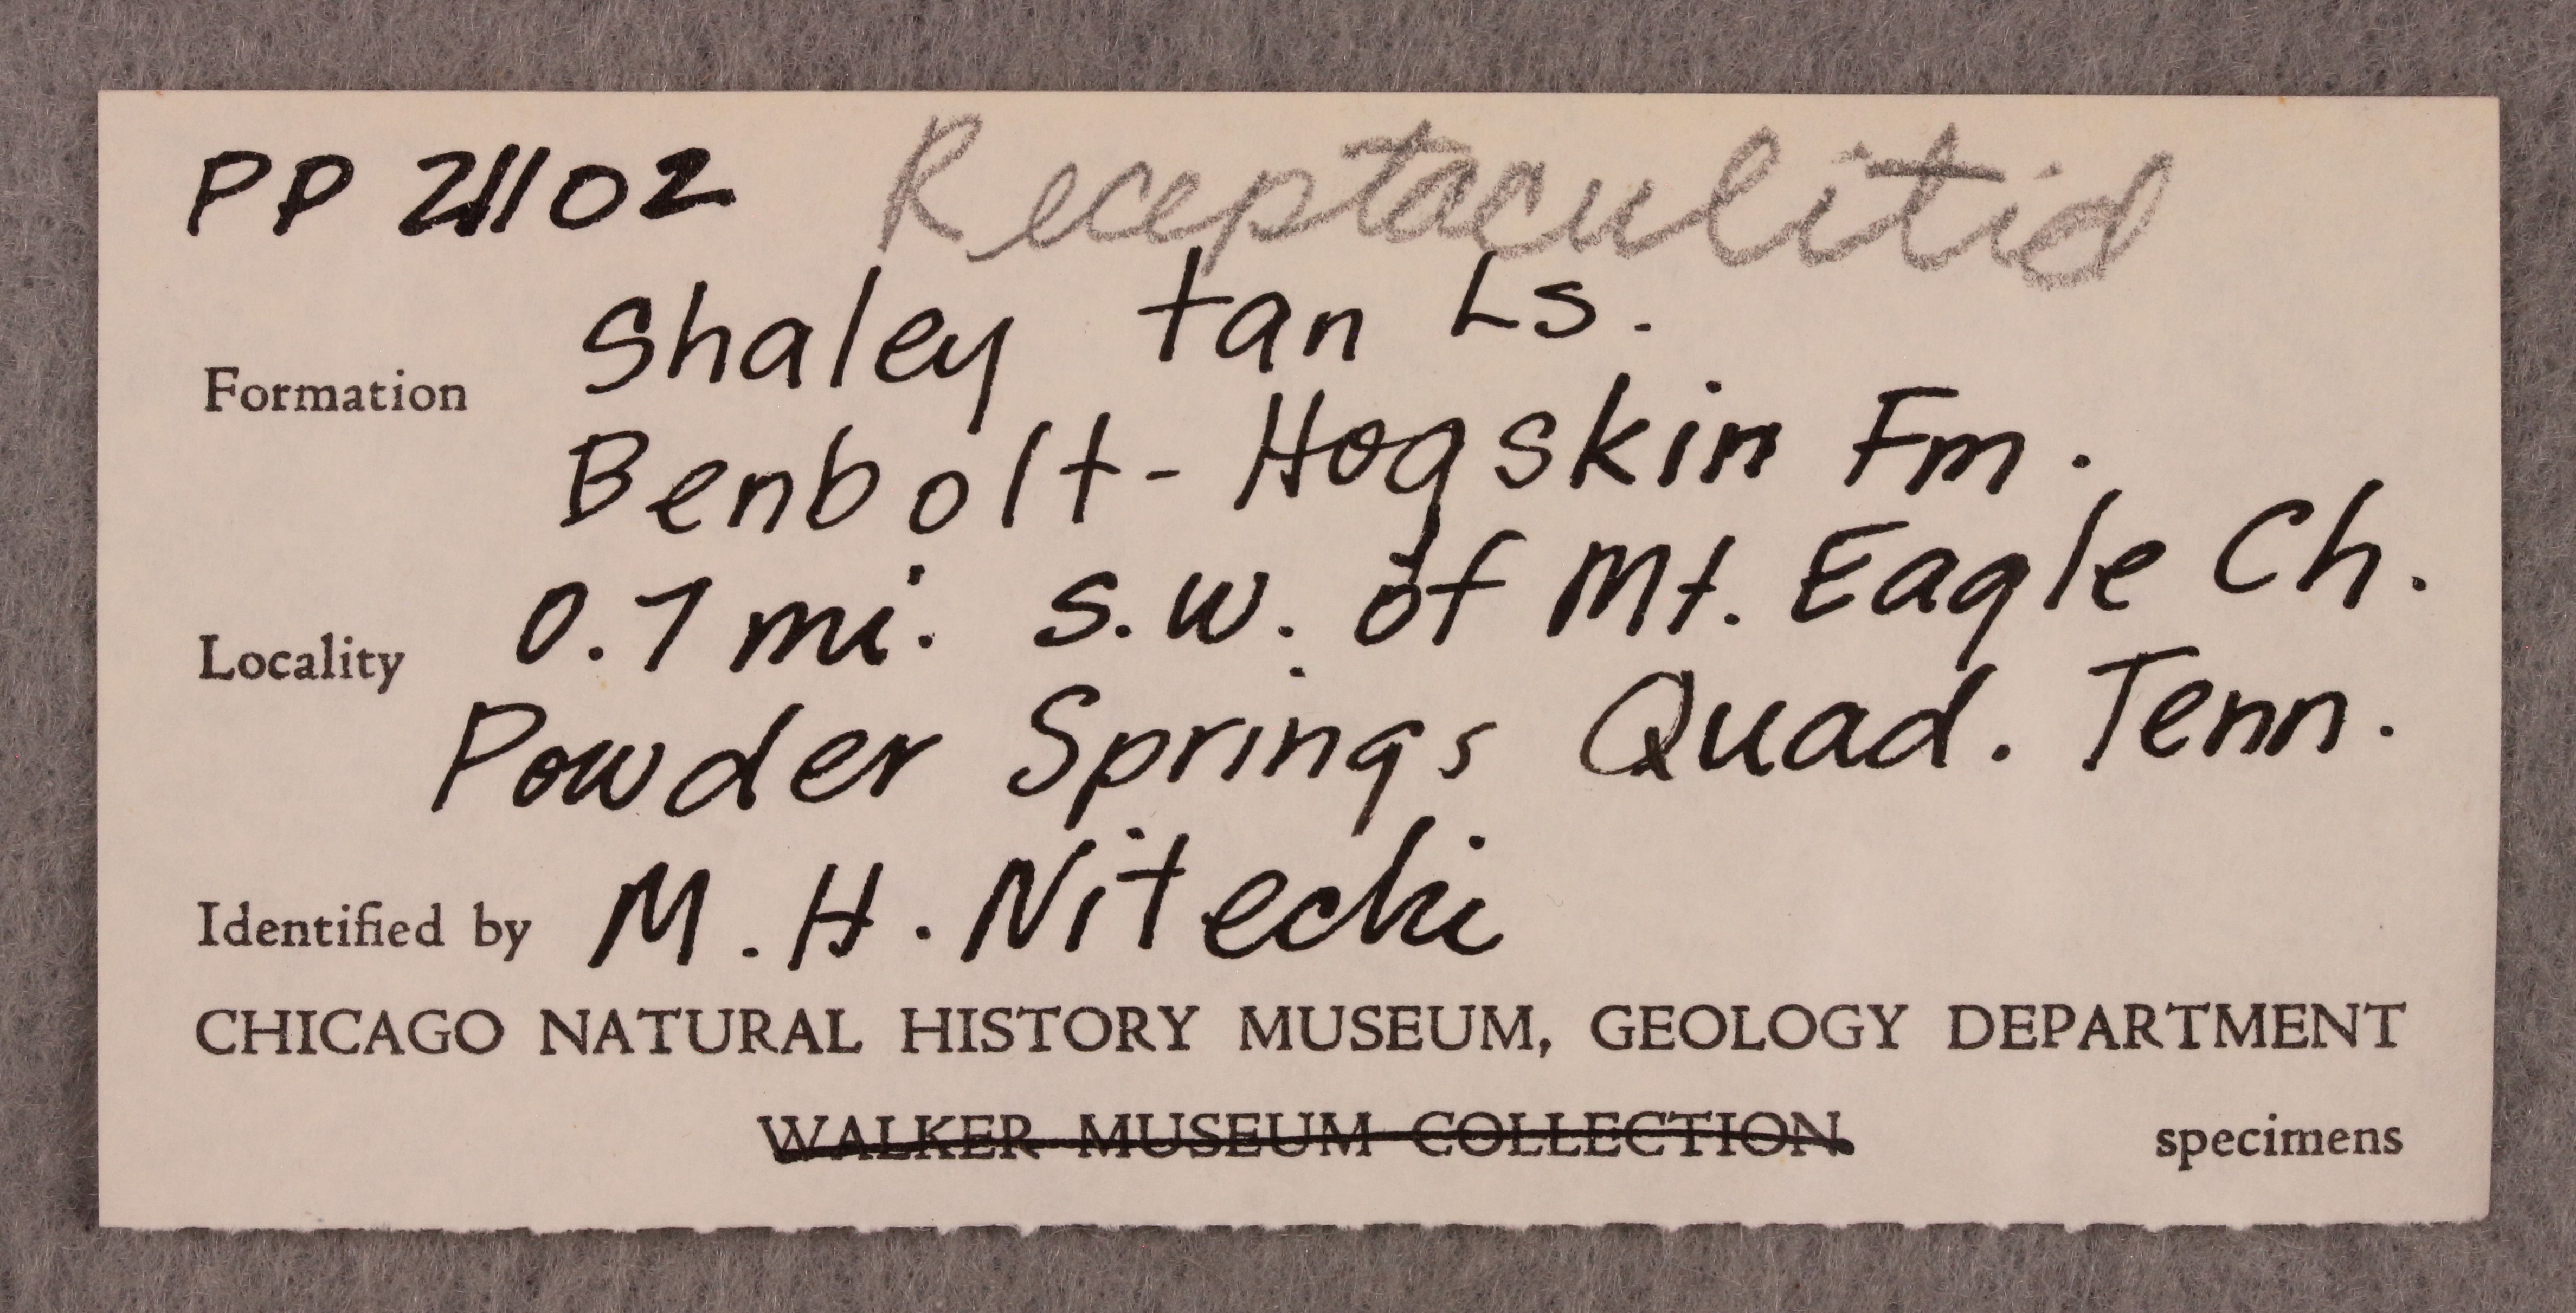 PP 21102 Receptaculitid
Shaley tan Ls.
Formation
Benbolt - Hogskin Fm.
0.7 mi. s.w. of Mt. Eagle Ch.
Locality
Powder Springs Quad. Tenn.
Identified by M. H. Nitecki
CHICAGO NATURAL HISTORY MUSEUM, GEOLOGY DEPARTMENT
WALKER MUSEUM COLLECTION specimens